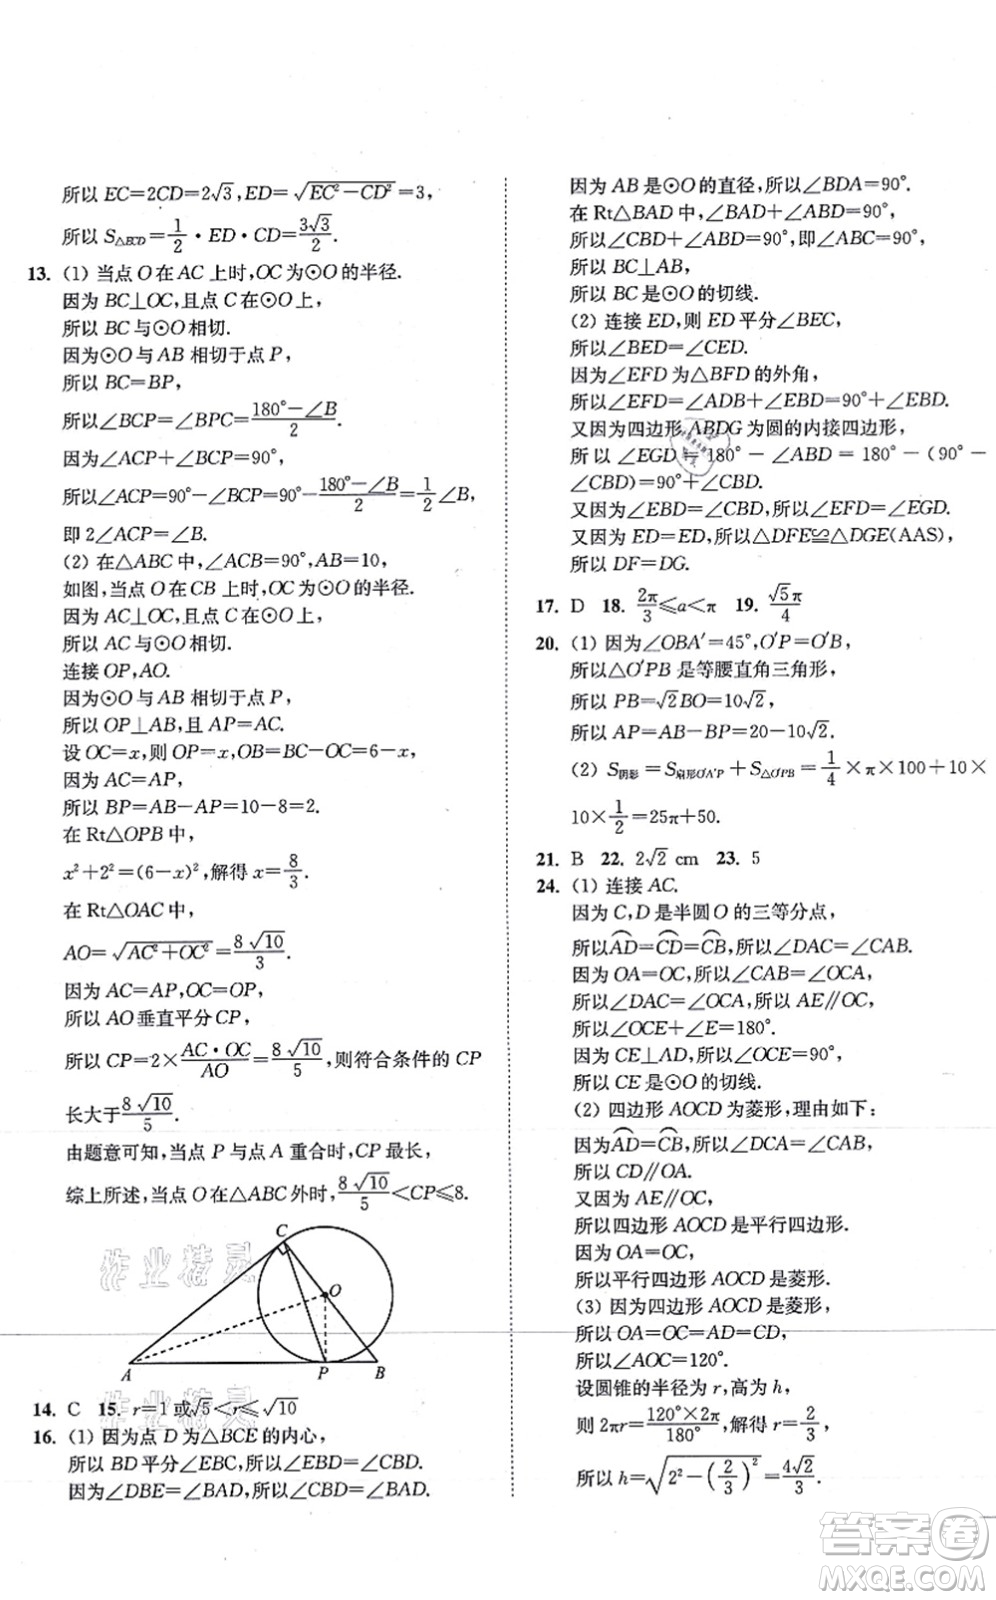 所以 EC=2CD=2√3,ED=√(EC²-CD²)=3,
所以 S△ECD=1/2·ED·CD=3√3/2.
13. (1) 当点 O 在 AC 上时,OC 为⊙O 的半径.
因为 BC⊥OC,且点 C 在⊙O 上,
所以 BC 与⊙O 相切.
因为⊙O 与 AB 相切于点 P,
所以 BC=BP,
所以∠BCP=∠BPC=(180°-∠B)/2.
因为∠ACP+∠BCP=90°,
所以∠ACP=90°-∠BCP=90°-(180°-∠B)/2=1/2∠B,
即 2∠ACP=∠B.
(2) 在△ABC 中,∠ACB=90°,AB=10,
如图,当点 O 在 CB 上时,OC 为⊙O 的半径.
因为 AC⊥OC,且点 C 在⊙O 上,
所以 AC 与⊙O 相切.
连接 OP,AO.
因为⊙O 与 AB 相切于点 P,
所以 OP⊥AB,且 AP=AC.
设 OC=x,则 OP=x,OB=BC-OC=6-x,
因为 AC=AP,
所以 BP=AB-AP=10-8=2.
在 Rt△OPB 中,
x²+2²=(6-x)²,解得 x=8/3.
在 Rt△OAC 中,
AO=√(AC²+OC²)=8√10/3.
因为 AC=AP,OC=OP,
所以 AO 垂直平分 CP,
所以 CP=2×AC·OC/AO=8√10/5,则符合条件的 CP
长大于8√10/5.
由题意可知,当点 P 与点 A 重合时,CP 最长,
综上所述,当点 O 在△ABC 外时,8√10/5<CP≤8.
C
O
A
P
B
作业精灵
作业精灵
14. C 15. r=1 或√5<r≤√10
16. (1) 因为点 D 为△BCE 的内心,
所以 BD 平分∠EBC,所以∠EBD=∠CBD.
因为∠DBE=∠BAD,所以∠CBD=∠BAD.
因为 AB 是⊙O 的直径,所以∠BDA=90°.
在 Rt△BAD 中,∠BAD+∠ABD=90°,
所以∠CBD+∠ABD=90°,即∠ABC=90°,
所以 BC⊥AB,
所以 BC 是⊙O 的切线.
(2) 连接 ED,则 ED 平分∠BEC,
所以∠BED=∠CED.
因为∠EFD 为△BFD 的外角,
所以∠EFD=∠ADB+∠EBD=90°+∠EBD.
又因为四边形 ABDG 为圆的内接四边形,
所以∠EGD=180°-∠ABD=180°-(90°-
∠CBD)=90°+∠CBD.
又因为∠EBD=∠CBD,所以∠EFD=∠EGD.
又因为 ED=ED,所以△DFE≌△DGE(AAS),
所以 DF=DG.
17. D 18. 2π/3≤a<π 19. √5π/4
20. (1) 因为∠OBA′=45°,O′P=O′B,
所以△O′PB 是等腰直角三角形,
所以 PB=√2BO=10√2,
所以 AP=AB-BP=20-10√2.
(2) S阴影=S扇形O′A′P+S△O′PB=1/4×π×100+10×
10×1/2=25π+50.
21. B 22. 2√2 cm 23. 5
24. (1) 连接 AC.
因为 C,D 是半圆 O 的三等分点,
所以AD⌒=CD⌒=CB⌒,所以∠DAC=∠CAB.
因为 OA=OC,所以∠CAB=∠OCA,
所以∠DAC=∠OCA,所以 AE∥OC,
所以∠OCE+∠E=180°.
因为 CE⊥AD,所以∠OCE=90°,
所以 CE 是⊙O 的切线.
(2) 四边形 AOCD 为菱形,理由如下:
因为AD⌒=CB⌒,所以∠DCA=∠CAB,
所以 CD∥OA.
又因为 AE∥OC,
所以四边形 AOCD 是平行四边形.
因为 OA=OC,
所以平行四边形 AOCD 是菱形.
(3) 因为四边形 AOCD 是菱形,
所以 OA=OC=AD=CD,
所以∠AOC=120°.
设圆锥的半径为 r,高为 h,
则 2πr=120°×2π/180°,解得 r=2/3,
所以 h=√(2²-(2/3)²)=4√2/3.
答案圈
MXQE.COM